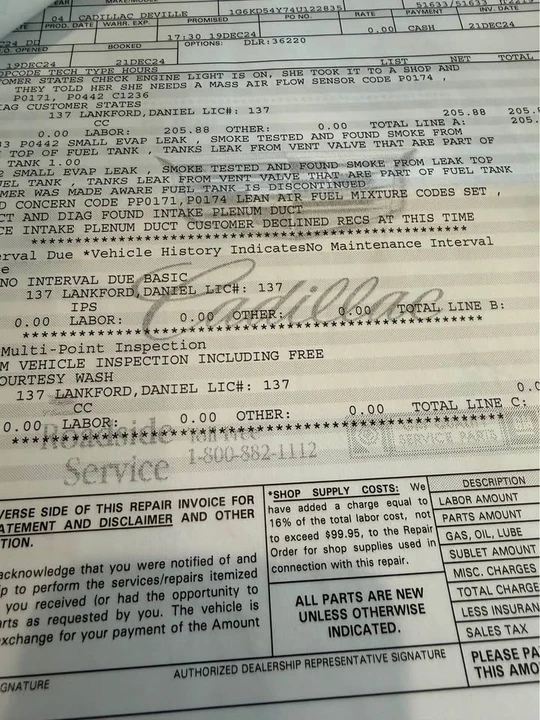 MAKE/MODEL
04 CADILLAC DEVILLE 1G6KD54Y74U122835 51633/51633
PROD. DATE WARR. EXP. PROMISED PO NO. RATE PAYMENT INV. DATE
17:30 19DEC24 0.00 CASH 21DEC24
R.O. OPENED BOOKED OPTIONS: DLR:36220
19DEC24 21DEC24
LIST NET TOTAL
OPCODE TECH TYPE HOURS
TOMER STATES CHECK ENGINE LIGHT IS ON, SHE TOOK IT TO A SHOP AND
THEY TOLD HER SHE NEEDS A MASS AIR FLOW SENSOR CODE P0174 ,
P0171, P0442 C1236
IAG CUSTOMER STATES
137 LANKFORD,DANIEL LIC#: 137
CC 205.88 205.
0.00 LABOR: 205.88 OTHER: 0.00 TOTAL LINE A: 205.
33 P0442 SMALL EVAP LEAK , SMOKE TESTED AND FOUND SMOKE FROM
TOP OF FUEL TANK , TANKS LEAK FROM VENT VALVE THAT ARE PART OF
TANK 1.00
2 SMALL EVAP LEAK , SMOKE TESTED AND FOUND SMOKE FROM LEAK TOP
UEL TANK , TANKS LEAK FROM VENT VALVE THAT ARE PART OF FUEL TANK
MER WAS MADE AWARE FUEL TANK IS DISCONTINUED
D CONCERN CODE PP0171,P0174 LEAN AIR FUEL MIXTURE CODES SET ,
CT AND DIAG FOUND INTAKE PLENUM DUCT
CE INTAKE PLENUM DUCT CUSTOMER DECLINED RECS AT THIS TIME
****************************************************
erval Due *Vehicle History IndicatesNo Maintenance Interval
e
NO INTERVAL DUE BASIC
137 LANKFORD,DANIEL LIC#: 137
IPS
0.00 LABOR: 0.00 OTHER: 0.00 TOTAL LINE B:
****************************************************
Cadillac
Multi-Point Inspection
M VEHICLE INSPECTION INCLUDING FREE
OURTESY WASH
137 LANKFORD,DANIEL LIC#: 137
CC 0.0
0.00 LABOR: 0.00 OTHER: 0.00 TOTAL LINE C:
****************************************************
Roadside Toll Free
Service 1-800-882-1112
SERVICE PARTS
VERSE SIDE OF THIS REPAIR INVOICE FOR
ATEMENT AND DISCLAIMER AND OTHER
TION.
acknowledge that you were notified of and
ip to perform the services/repairs itemized
you received (or had the opportunity to
rts as requested by you. The vehicle is
xchange for your payment of the Amount
*SHOP SUPPLY COSTS: We
have added a charge equal to
16% of the total labor cost, not
to exceed $99.95, to the Repair
Order for shop supplies used in
connection with this repair.
ALL PARTS ARE NEW
UNLESS OTHERWISE
INDICATED.
DESCRIPTION
LABOR AMOUNT
PARTS AMOUNT
GAS, OIL, LUBE
SUBLET AMOUNT
MISC. CHARGES
TOTAL CHARGE
LESS INSURAN
SALES TAX
PLEASE PA
THIS AMO
GNATURE
AUTHORIZED DEALERSHIP REPRESENTATIVE SIGNATURE